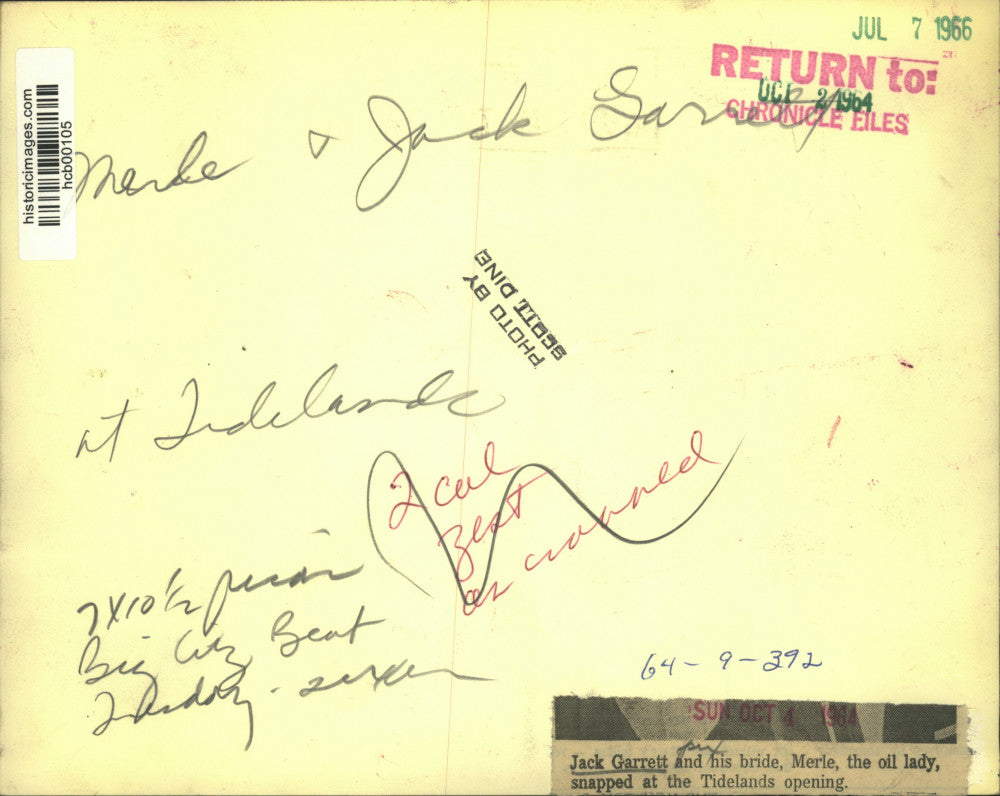 JUL 7 1966
RETURN to:
OCT 2 1964
CHRONICLE FILES
historicimages.com
hcb00105
Merle & Jack Garrett
PHOTO BY
SCOTT DINE
at Tidelands
2 col
Beat
as cropped
7x10 1/2
Big City Beat
64-9-392
SUN OCT 4 1964
pix
Jack Garrett and his bride, Merle, the oil lady,
snapped at the Tidelands opening.